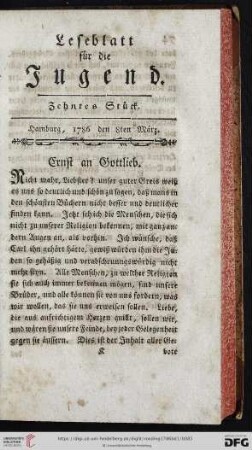 Leseblatt
für die
Jugend.
Zehntes Stück.
Hamburg, 1786 den 8ten März.
Ernst an Gottlieb.
Nicht wahr, Liebster? unser guter Greis weiß
es uns so deutlich und schön zu sagen, daß mans in
den schönsten Büchern nicht besser und deutlicher
finden kann. Jetzt seh ich die Menschen, die sich
nicht zu unserer Religion bekennen, mit ganz an-
dern Augen an, als vorhin. Ich wünsche, daß
Carl ihn gehört hätte; gewiß würden ihm die Ju-
den so gehäßig und verabscheuungswürdig nicht
mehr seyn. Alle Menschen, zu welcher Religion
sie sich auch immer bekennen mögen, sind unsere
Brüder, und alle können sie von uns fordern, was
wir wollen, das sie uns erweisen sollen. Liebe,
die aus aufrichtigem Herzen quillt, sollen wir,
und wären sie unsere Feinde, bey jeder Gelegenheit
gegen sie äussern. Dies ist der Inhalt aller Ge-
K bote